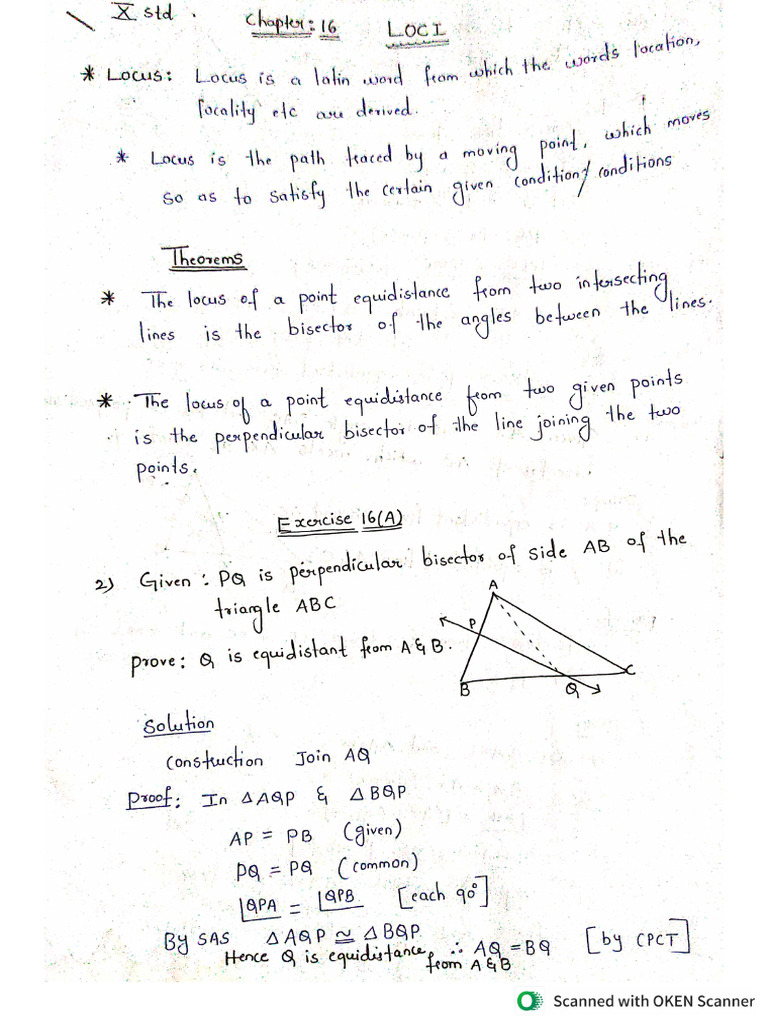 X std.
Chapter: 16 LOCI
* Locus: Locus is a latin word from which the words location,
locality etc are derived.
* Locus is the path traced by a moving point, which moves
so as to satisfy the certain given condition/conditions
Theorems
* The locus of a point equidistance from two intersecting
lines is the bisector of the angles between the lines.
* The locus of a point equidistance from two given points
is the perpendicular bisector of the line joining the two
points.
Exercise 16(A)
2) Given: PQ is perpendicular bisector of side AB of the
triangle ABC
A
P
B
Q
C
Prove: Q is equidistant from A & B.
Solution
Construction Join AQ
Proof: In △AQP & △BQP
AP = PB (given)
PQ = PQ (common)
∠QPA = ∠QPB [each 90°]
By SAS △AQP ≅ △BQP
∴ AQ = BQ [by CPCT]
Hence Q is equidistance from A & B
Scanned with OKEN Scanner